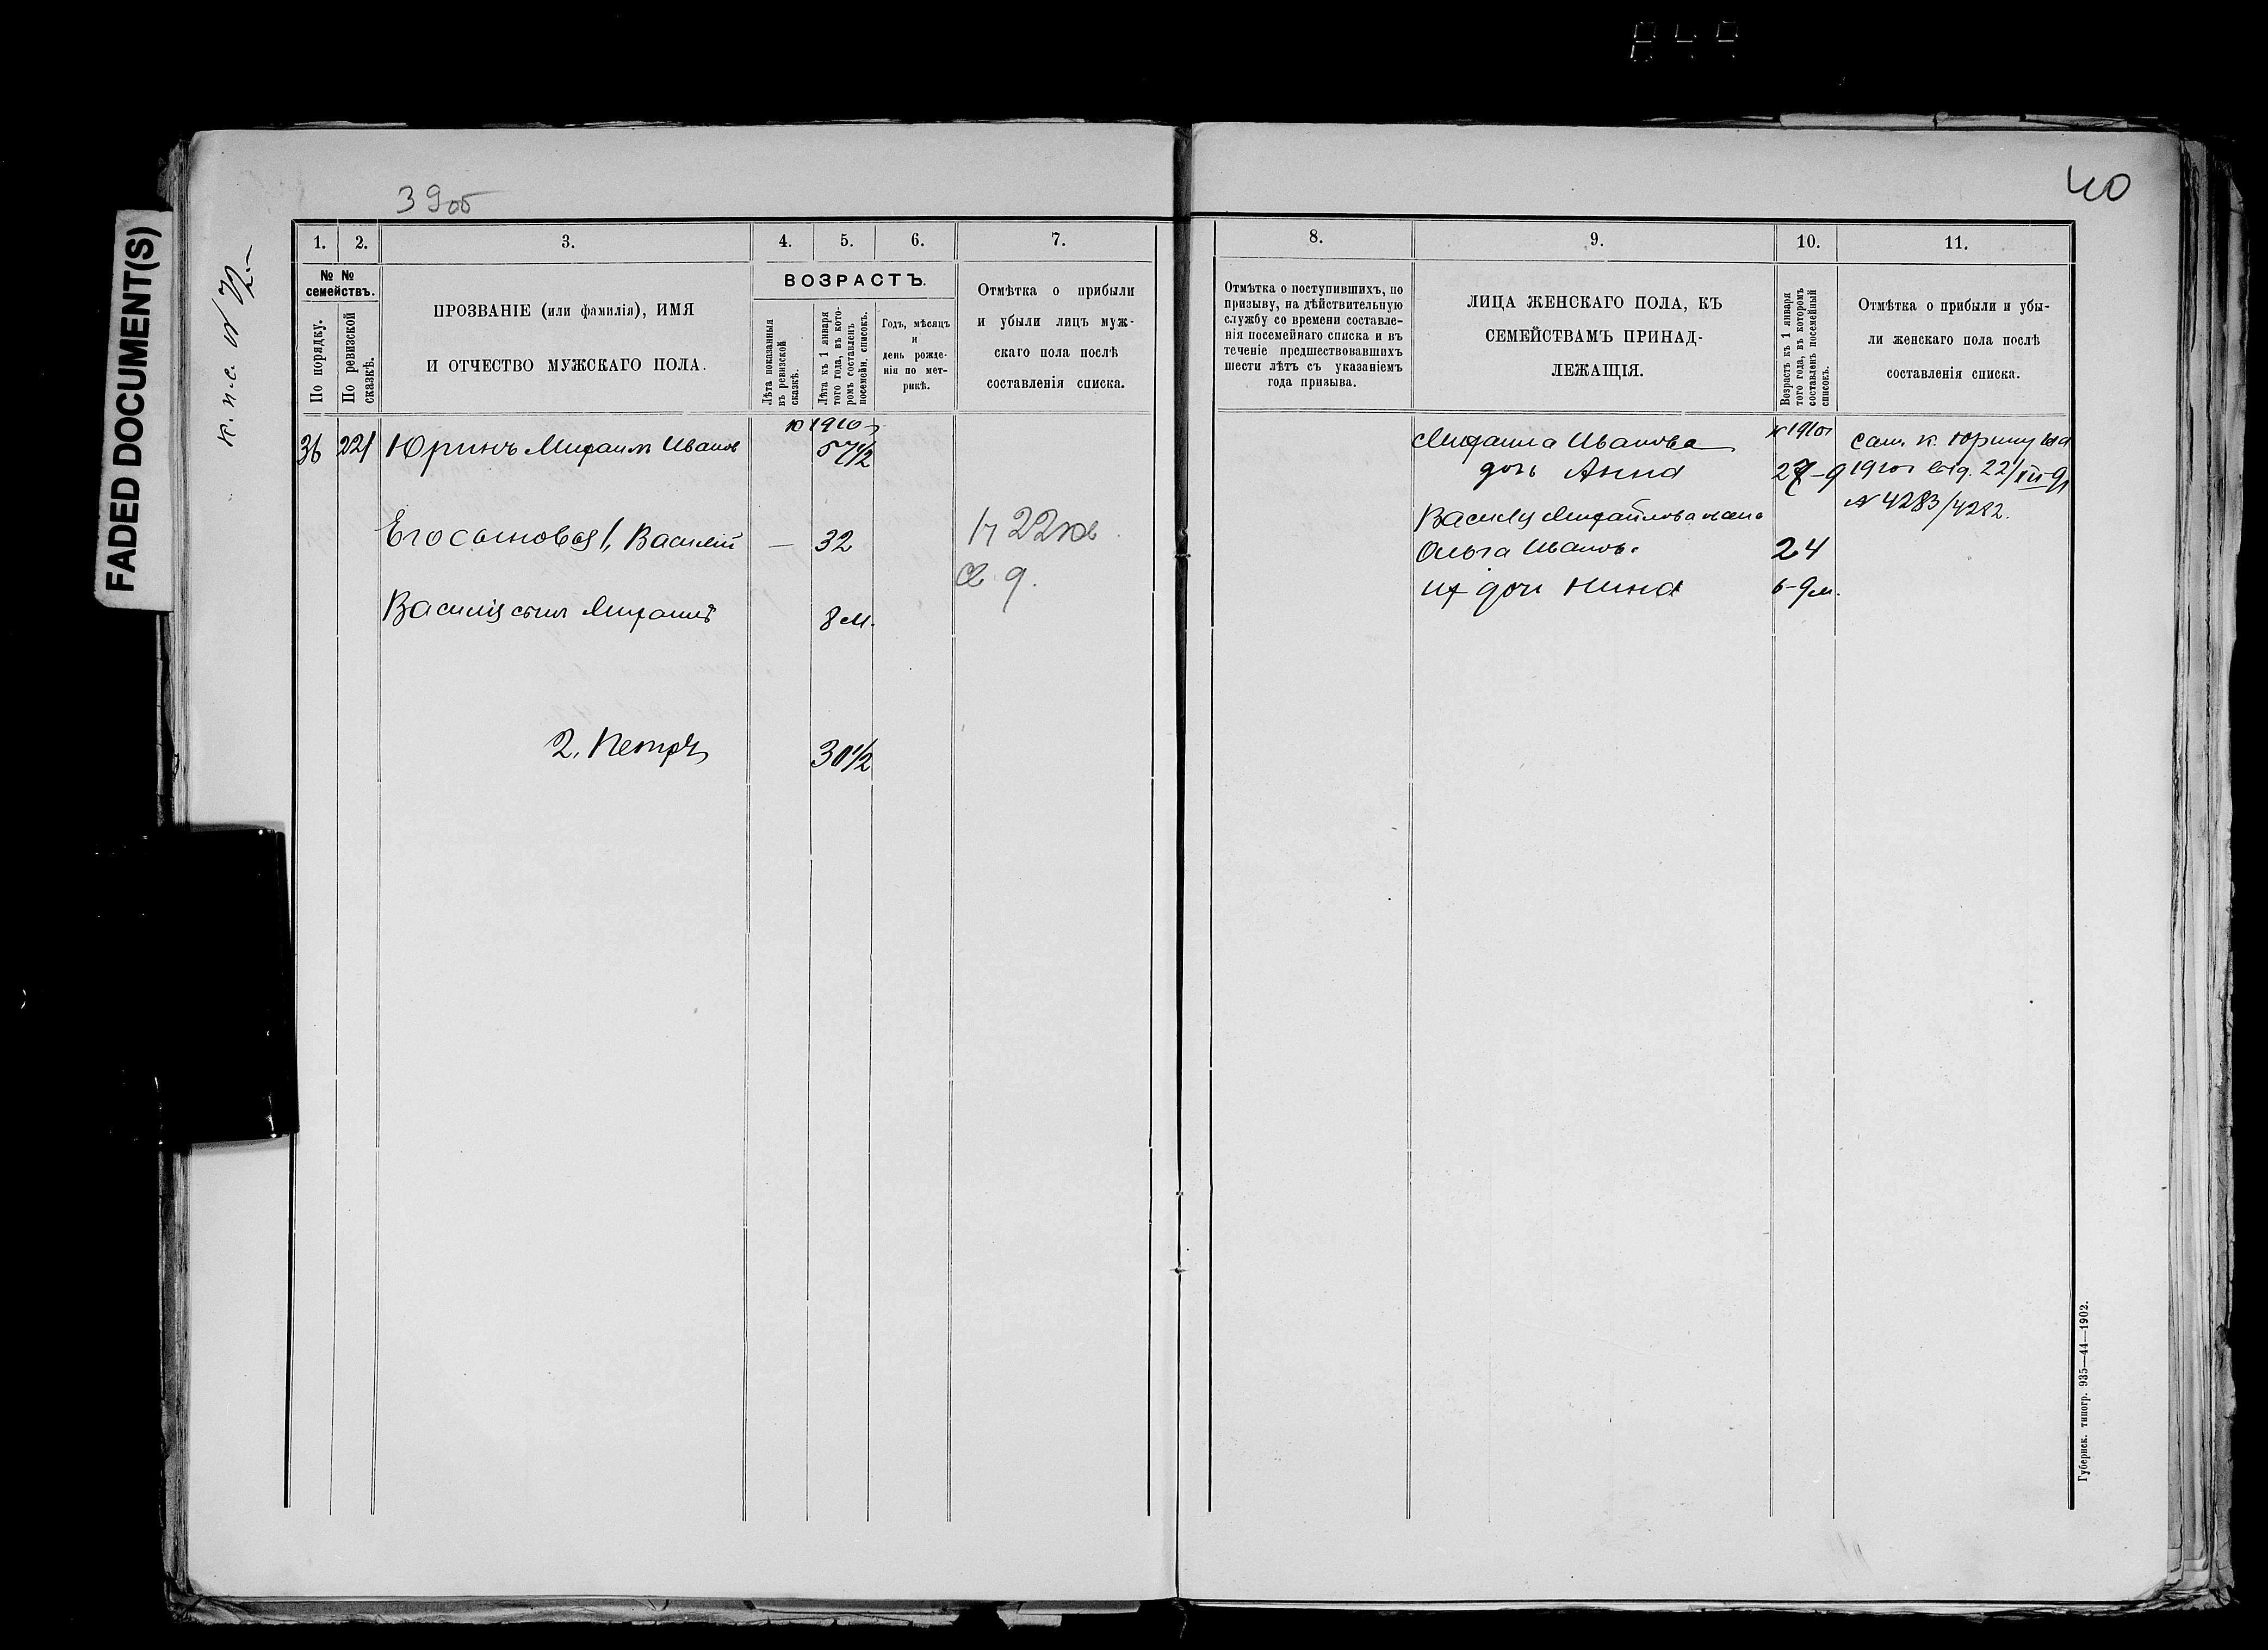 FADED DOCUMENT(S)
39об
40
1.
2.
3.
4.
5.
6.
7.
8.
9.
10.
11.
№ №
семействъ.
По порядку.
По ревизской
сказкѣ.
ПРОЗВАНІЕ (или фамилія), ИМЯ
И ОТЧЕСТВО МУЖСКАГО ПОЛА.
ВОЗРАСТЪ.
Лѣта показанныя
въ ревизской
сказкѣ.
Лѣта къ 1 января
того года, въ кото-
ромъ составленъ
посемейн. списокъ.
Годъ, мѣсяцъ
и
день рожде-
нія по мет-
рикѣ.
Отмѣтка о прибыли
и убыли лицъ муж-
скаго пола послѣ
составленія списка.
Отмѣтка о поступившихъ, по
призыву, на дѣйствительную
службу со времени составле-
нія посемейнаго списка и въ
теченіе предшествовавшихъ
шести лѣтъ съ указаніемъ
года призыва.
ЛИЦА ЖЕНСКАГО ПОЛА, КЪ
СЕМЕЙСТВАМЪ ПРИНАД-
ЛЕЖАЩІЯ.
Возрастъ къ 1 января
того года, въ которомъ
составленъ посемейный
списокъ.
Отмѣтка о прибыли и убы-
ли женскаго пола послѣ
составленія списка.
к. п. с. №
1910
36 221 Юринъ Михаилъ Иванов 57 1/2
Его сыновья 1, Василій — 32
Василія сынъ Михаилъ 8 м.
2. Петръ 30 1/2
22
к 1910г
Михаила Иванова
дочь Анна 27-9
Василія Михайлова жена
Ольга Иванов. 24
их дочь Нина 6-9м.
к. Юрину
22/XII
№ 4283/4282.
Губернск. типогр. 935—44—1902.